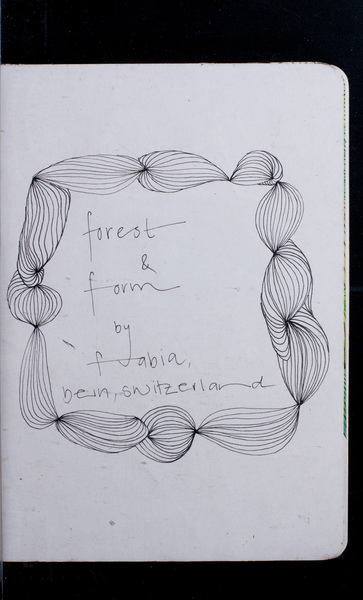 forest
&
form
by
fabia,
bern, switzerland